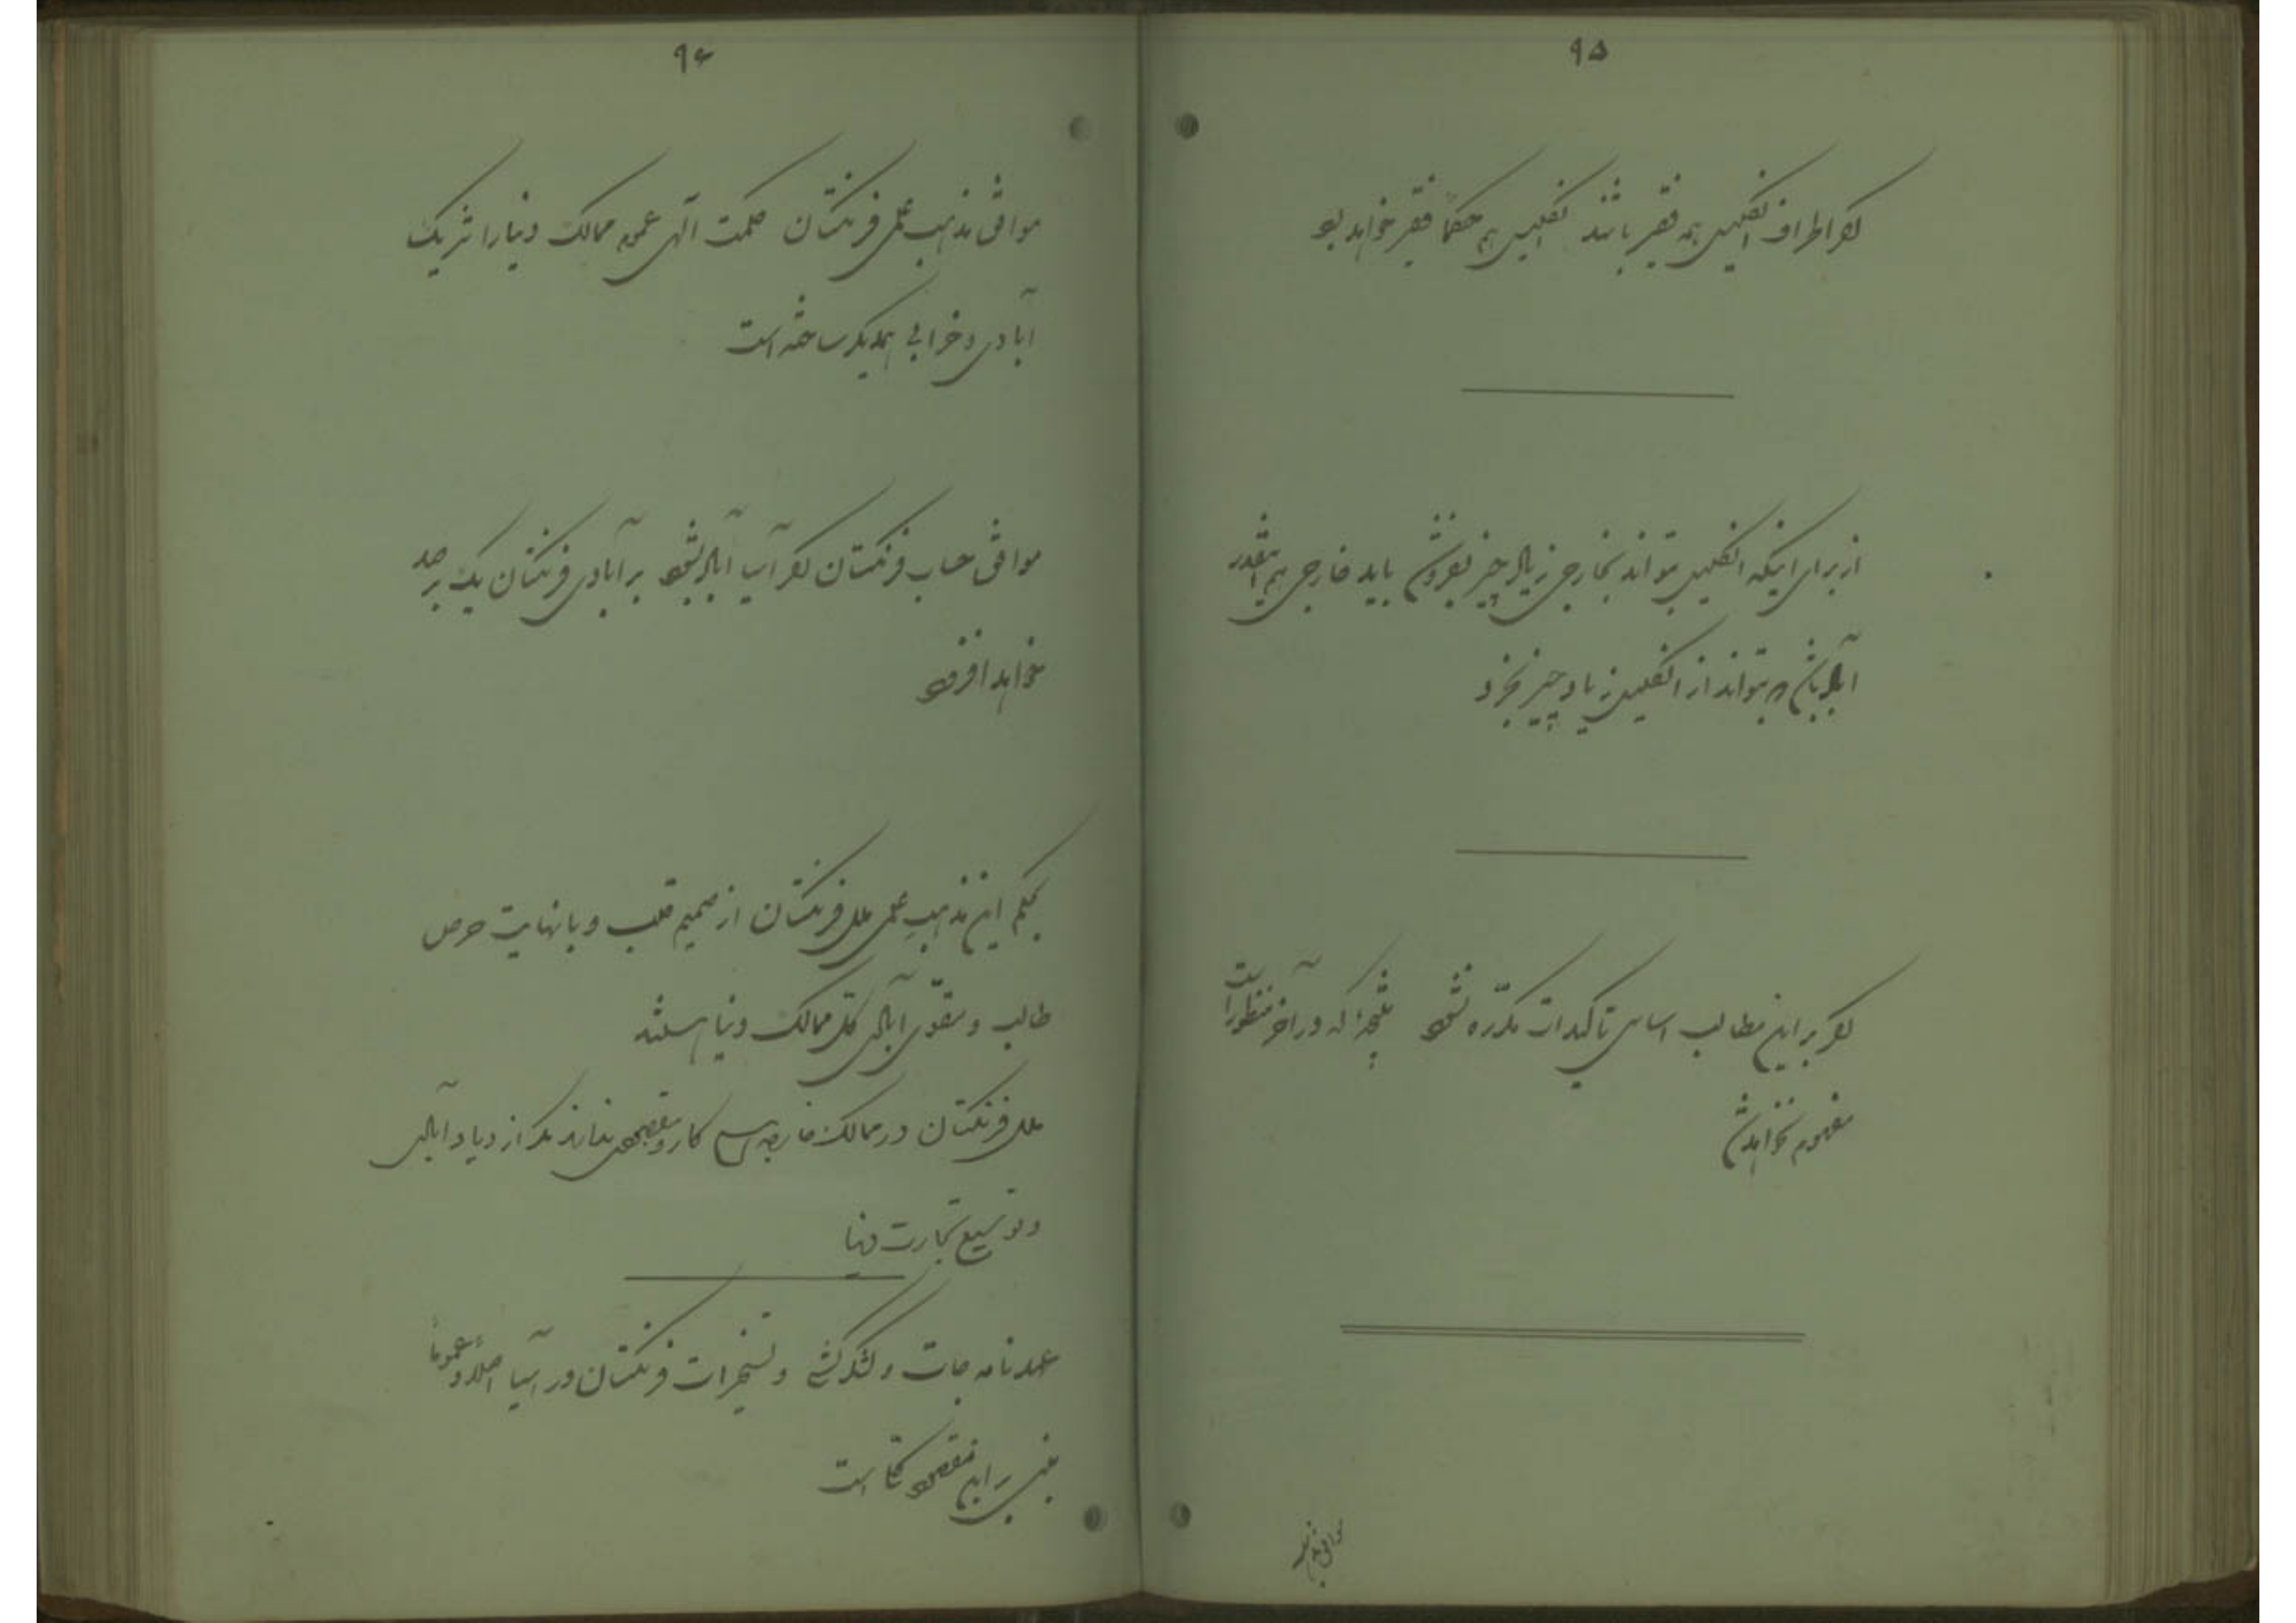 ۹۵
اگر اطراف انگلیس همه فقیر باشند انگلیس هم حکماً فقیر خواهد بود
از برای اینکه انگلیس بتواند بخارجی زیاد چیز بفروشد باید خارجی هم آنقدر
آباد باشد که بتواند از انگلیس زیاد چیز بخرد
اگر بر این مطالب اساسی تأکیدات مکرره نشود نتیجهٔ که در آخر منظور است
مفهوم نخواهد شد
موافق مذهب
۹۶
موافق مذهب علمی فرنگستان حکمت آلهی عموم ممالک دنیا را شریک
آبادی و خرابی همدیگر ساخته است
موافق حساب فرنگستان اگر آسیا آباد بشود بر آبادی فرنگستان یک بر صد
خواهد افزود
بحکم این مذهب علمی ملل فرنگستان از صمیم قلب و با نهایت حرص
طالب و مقوّی آبادی کل ممالک دنیا هستند
ملل فرنگستان در ممالک خارجه کار و مقصودی ندارند مگر ازدیاد آبادی
و توسیع تجارت دنیا
عهدنامه جات و لشکرکشی و تسخیرات فرنگستان در آسیا اصلاً و عموماً
مبنی بر این مقصود است